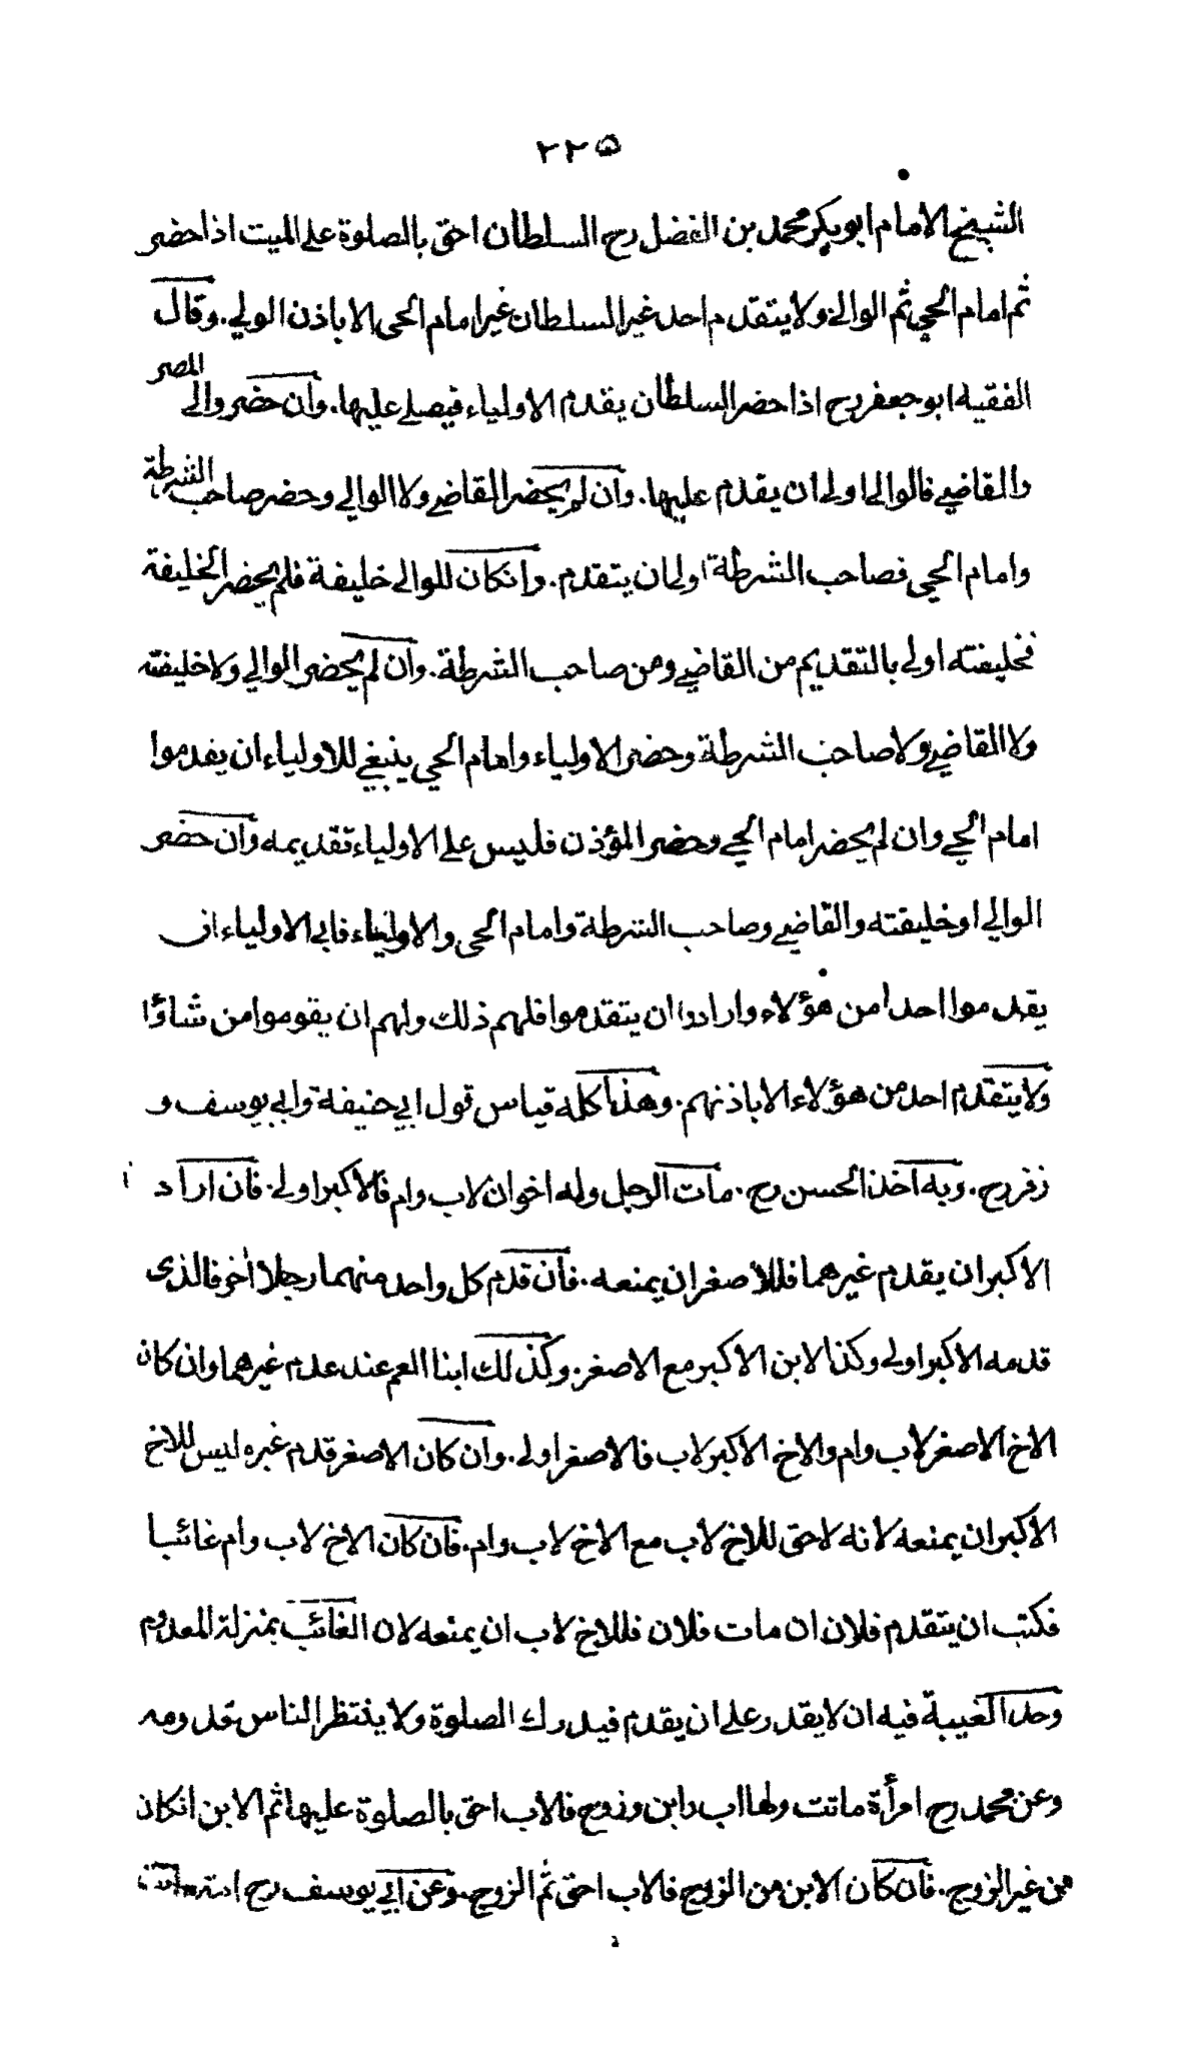 ٢٢۵
الشيخ الامام ابو بكر محمد بن الفضل رح السلطان احق بالصلوة على الميت اذا حضر
ثم امام الحي ثم الوالي ولا يتقدم احد غير السلطان غير امام الحى الا باذن الولي. وقال
الفقيه ابو جعفر رح اذا حضر السلطان يقدم الاولياء فيصلے عليها. وان حضر والے المصر
والقاضے فالوالى اولى ان يقدم عليها. وان لم يحضر القاضے ولا الوالي وحضر صاحب الشرطة
وامام الحي فصاحب الشرطة اولى ان يتقدم. وانكان للوالے خليفة فلم يحضر الخليفة
فخليفته اولى بالتقديم من القاضے ومن صاحب الشرطة. وان لم يحضر الوالي ولا خليفته
ولا القاضے ولا صاحب الشرطة وحضر الاولياء وامام الحي ينبغي للاولياء ان يقدموا
امام الحے وان لم يحضر امام الحے وحضر المؤذن فليس على الاولياء تقديمه وان حضر
الوالي او خليفته والقاضے وصاحب الشرطة وامام الحى والاولياء فابى الاولياء ان
يقدموا احدا من هؤلاء وارادوا ان يتقدموا فلهم ذلك ولهم ان يقوموا من شاؤا
ولا يتقدم احد من هؤلاء الا باذنهم. وهذا كله قياس قول ابي حنيفة وابي يوسف و
زفر رح. وبه اخذ الحسن رح. مات الرجل وله اخوان لاب وام فالاكبر اولى. فان اراد
الاكبر ان يقدم غيرهما فللاصغر ان يمنعه. فان قدم كل واحد منهما رجلا اخر فالذى
قدمه الاكبر اولى وكذا الابن الاكبر مع الاصغر. وكذلك ابنا العم عند عدم غيرهما وان كان
الاخ الاصغر لاب وام والاخ الاكبر لاب فالاصغر اولى. وان كان الاصغر قدم غيره ليس للاخ
الاكبر ان يمنعه لانه لا حق للاخ لاب مع الاخ لاب وام. فان كان الاخ لاب وام غائبا
فكتب ان يتقدم فلان ان مات فلان فللاخ لاب ان يمنعه لان الغائب بمنزلة المعدوم
وحد الغيبة فيه ان لا يقدر على ان يقدم فيدرك الصلوة ولا ينتظر الناس قدومه
وعن محمد رح امرأة ماتت ولها اب وابن وزوج فالاب احق بالصلوة عليها ثم الابن انكان
من غير الزوج. فان كان الابن من الزوج فالاب احق ثم الزوج. وعن ابي يوسف رح